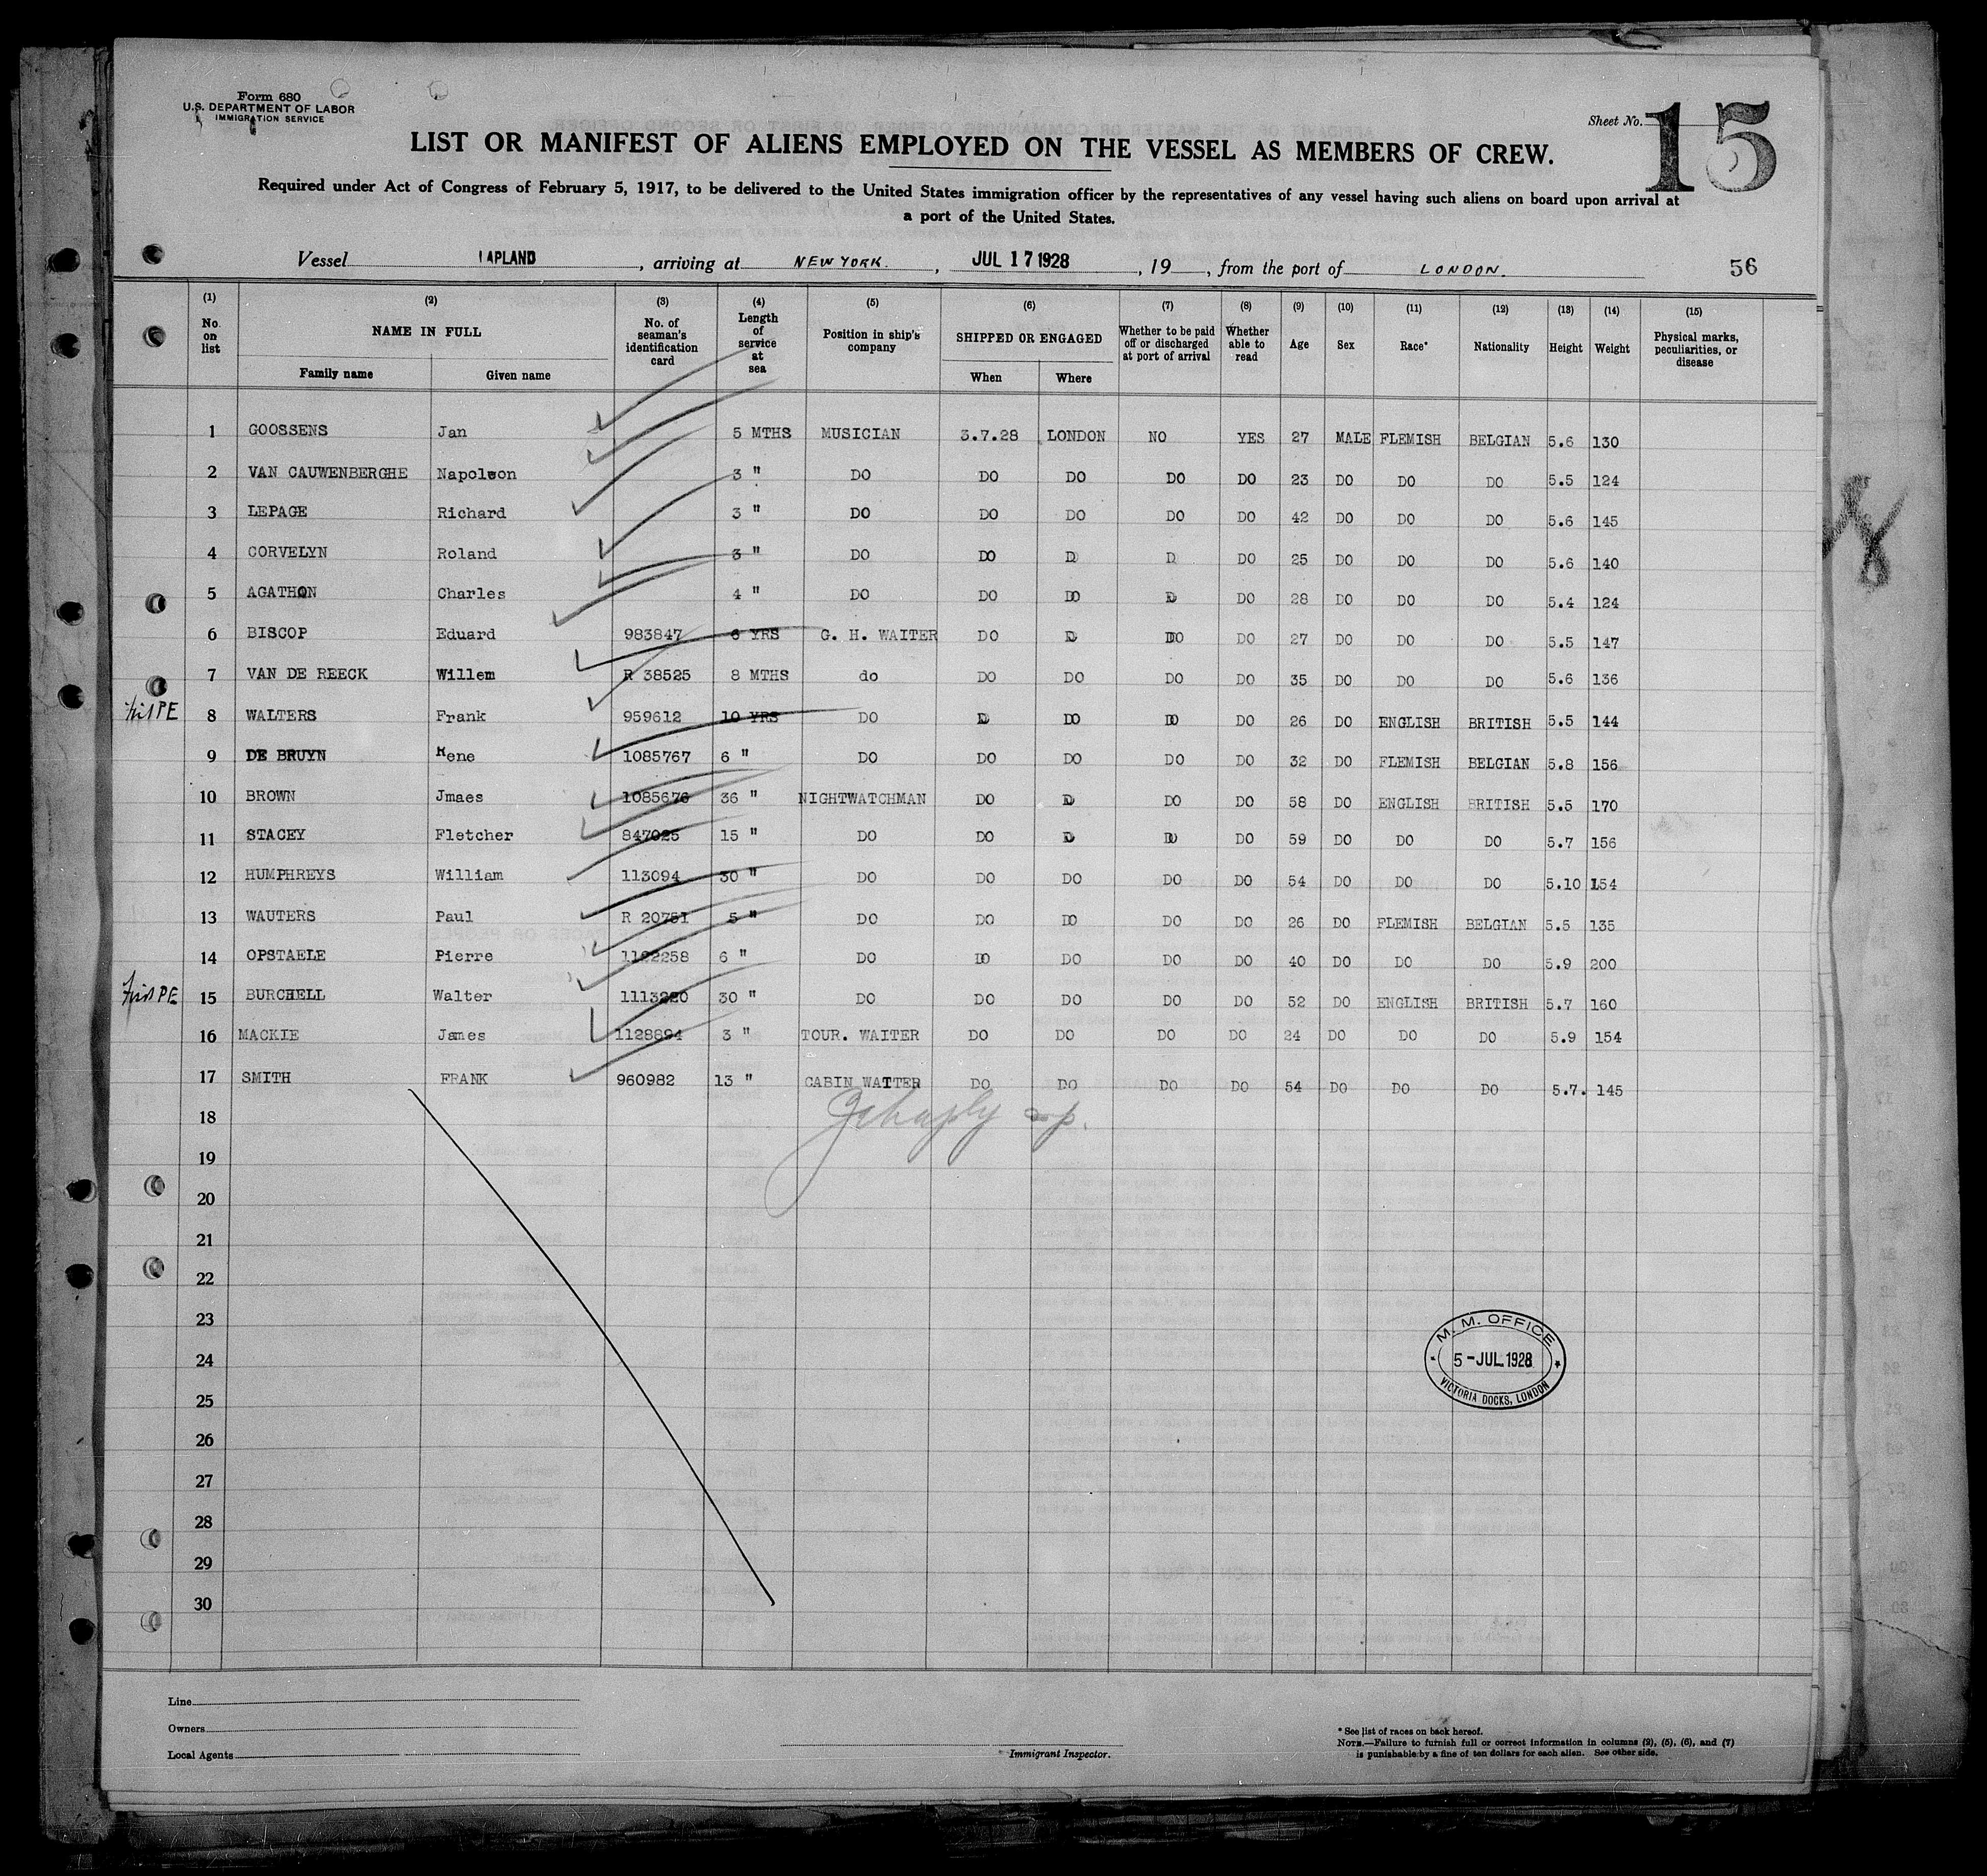 Form 680
U.S. DEPARTMENT OF LABOR
IMMIGRATION SERVICE
Sheet No. 15
LIST OR MANIFEST OF ALIENS EMPLOYED ON THE VESSEL AS MEMBERS OF CREW.
Required under Act of Congress of February 5, 1917, to be delivered to the United States immigration officer by the representatives of any vessel having such aliens on board upon arrival at
a port of the United States.
Vessel LAPLAND, arriving at NEW YORK., JUL 17 1928, 19, from the port of LONDON. 56
(1) No. on list (2) NAME IN FULL Family name Given name (3) No. of seaman's identification card (4) Length of service at sea (5) Position in ship's company (6) SHIPPED OR ENGAGED When Where (7) Whether to be paid off or discharged at port of arrival (8) Whether able to read (9) Age (10) Sex (11) Race* (12) Nationality (13) Height (14) Weight (15) Physical marks, peculiarities, or disease
1 GOOSSENS Jan 5 MTHS MUSICIAN 3.7.28 LONDON NO YES 27 MALE FLEMISH BELGIAN 5.6 130
2 VAN CAUWENBERGHE Napoleon 3 " DO DO DO DO DO 23 DO DO DO 5.5 124
3 LEPAGE Richard 3 " DO DO DO DO DO 42 DO DO DO 5.6 145
4 CORVELYN Roland 3 " DO DO D D DO 25 DO DO DO 5.6 140
5 AGATHON Charles 4 " DO DO DO D DO 28 DO DO DO 5.4 124
6 BISCOP Eduard 983847 6 YRS G. H. WAITER DO D DO DO 27 DO DO DO 5.5 147
7 VAN DE REECK Willem R 38525 8 MTHS do DO DO DO DO 35 DO DO DO 5.6 136
8 WALTERS Frank 959612 10 YRS DO D DO DO DO 26 DO ENGLISH BRITISH 5.5 144
9 DE BRUYN Rene 1085767 6 " DO DO DO DO DO 32 DO FLEMISH BELGIAN 5.8 156
10 BROWN Jmaes 1085676 36 " NIGHTWATCHMAN DO D DO DO 58 DO ENGLISH BRITISH 5.5 170
11 STACEY Fletcher 847025 15 " DO DO D DO DO 59 DO DO DO 5.7 156
12 HUMPHREYS William 113094 30 " DO DO DO DO DO 54 DO DO DO 5.10 154
13 WAUTERS Paul R 20751 5 " DO DO DO DO DO 26 DO FLEMISH BELGIAN 5.5 135
14 OPSTAELE Pierre 1192258 6 " DO DO DO DO DO 40 DO DO DO 5.9 200
15 BURCHELL Walter 1113220 30 " DO DO DO DO DO 52 DO ENGLISH BRITISH 5.7 160
16 MACKIE James 1128894 3 " TOUR. WAITER DO DO DO DO 24 DO DO DO 5.9 154
17 SMITH FRANK 960982 13 " CABIN WATTER DO DO DO DO 54 DO DO DO 5.7. 145
18
19
20
21
22
23
24
25
26
27
28
29
30
M. M. OFFICE
5-JUL 1928
VICTORIA DOCKS, LONDON
Line
Owners
Local Agents
Immigrant Inspector.
* See list of races on back hereof.
NOTE.—Failure to furnish full or correct information in columns (2), (5), (6), and (7)
is punishable by a fine of ten dollars for each alien. See other side.